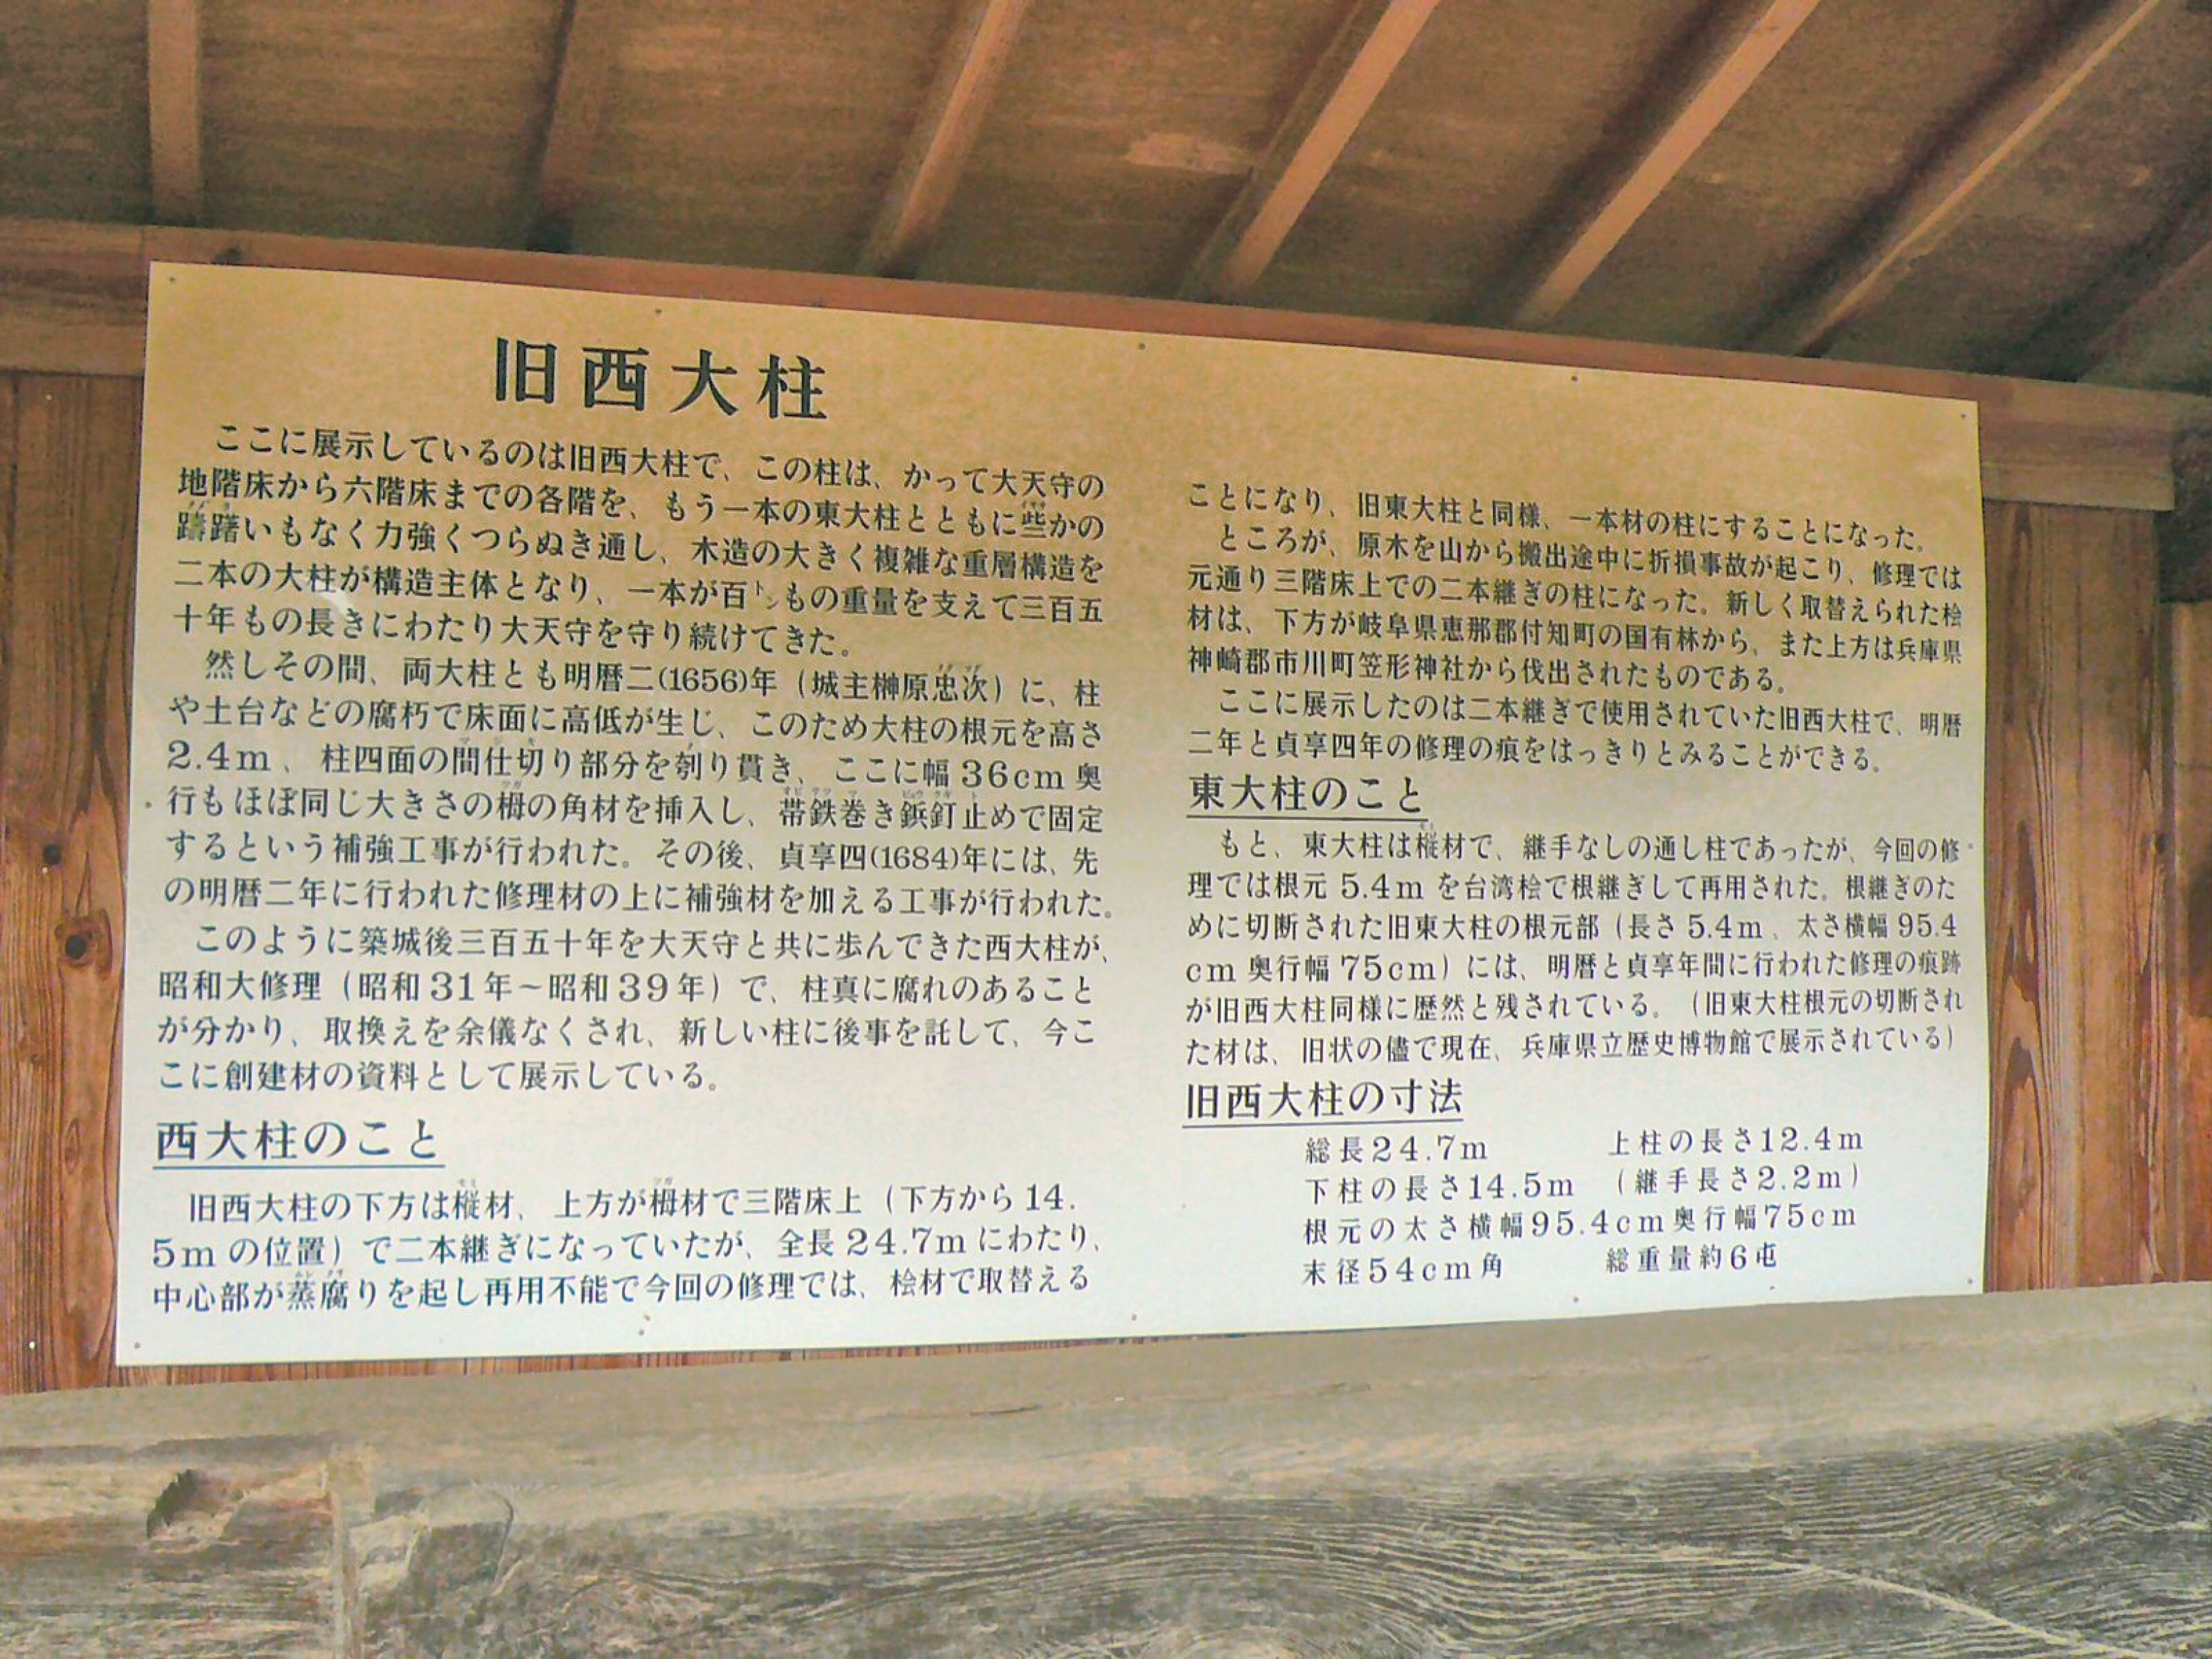 旧西大柱
ここに展示しているのは旧西大柱で、この柱は、かって大天守の
地階床から六階床までの各階を、もう一本の東大柱とともに些かの
躊躇いもなく力強くつらぬき通し、木造の大きく複雑な重層構造を
二本の大柱が構造主体となり、一本が百㌧もの重量を支えて三百五
十年もの長きにわたり大天守を守り続けてきた。
然しその間、両大柱とも明暦二(1656)年（城主榊原忠次）に、柱
や土台などの腐朽で床面に高低が生じ、このため大柱の根元を高さ
2.4m、柱四面の間仕切り部分を刳り貫き、ここに幅36cm奥
行もほぼ同じ大きさの栂の角材を挿入し、帯鉄巻き鋲釘止めで固定
するという補強工事が行われた。その後、貞享四(1684)年には、先
の明暦二年に行われた修理材の上に補強材を加える工事が行われた。
このように築城後三百五十年を大天守と共に歩んできた西大柱が、
昭和大修理（昭和31年～昭和39年）で、柱真に腐れのあること
が分かり、取換えを余儀なくされ、新しい柱に後事を託して、今こ
こに創建材の資料として展示している。
西大柱のこと
旧西大柱の下方は樅材、上方が栂材で三階床上（下方から14.
5mの位置）で二本継ぎになっていたが、全長24.7mにわたり、
中心部が蒸腐りを起し再用不能で今回の修理では、桧材で取替える
ことになり、旧東大柱と同様、一本材の柱にすることになった。
ところが、原木を山から搬出途中に折損事故が起こり、修理では
元通り三階床上での二本継ぎの柱になった。新しく取替えられた桧
材は、下方が岐阜県恵那郡付知町の国有林から、また上方は兵庫県
神崎郡市川町笠形神社から伐出されたものである。
ここに展示したのは二本継ぎで使用されていた旧西大柱で、明暦
二年と貞享四年の修理の痕をはっきりとみることができる。
東大柱のこと
もと、東大柱は樅材で、継手なしの通し柱であったが、今回の修
理では根元5.4mを台湾桧で根継ぎして再用された。根継ぎのた
めに切断された旧東大柱の根元部（長さ5.4m、太さ横幅95.4
cm奥行幅75cm）には、明暦と貞享年間に行われた修理の痕跡
が旧西大柱同様に歴然と残されている。（旧東大柱根元の切断され
た材は、旧状の儘で現在、兵庫県立歴史博物館で展示されている）
旧西大柱の寸法
総長24.7m 上柱の長さ12.4m
下柱の長さ14.5m （継手長さ2.2m）
根元の太さ横幅95.4cm奥行幅75cm
末径54cm角 総重量約6屯